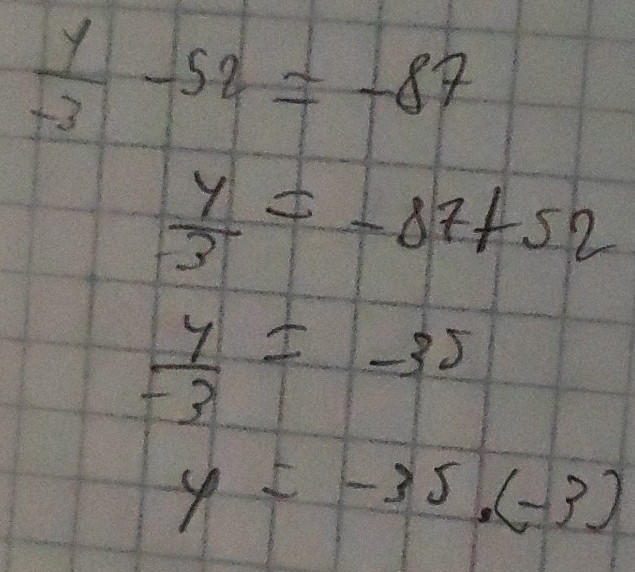 y/-3 -52 = -87
y/-3 = -87+52
y/-3 = -35
y = -35.(-3)